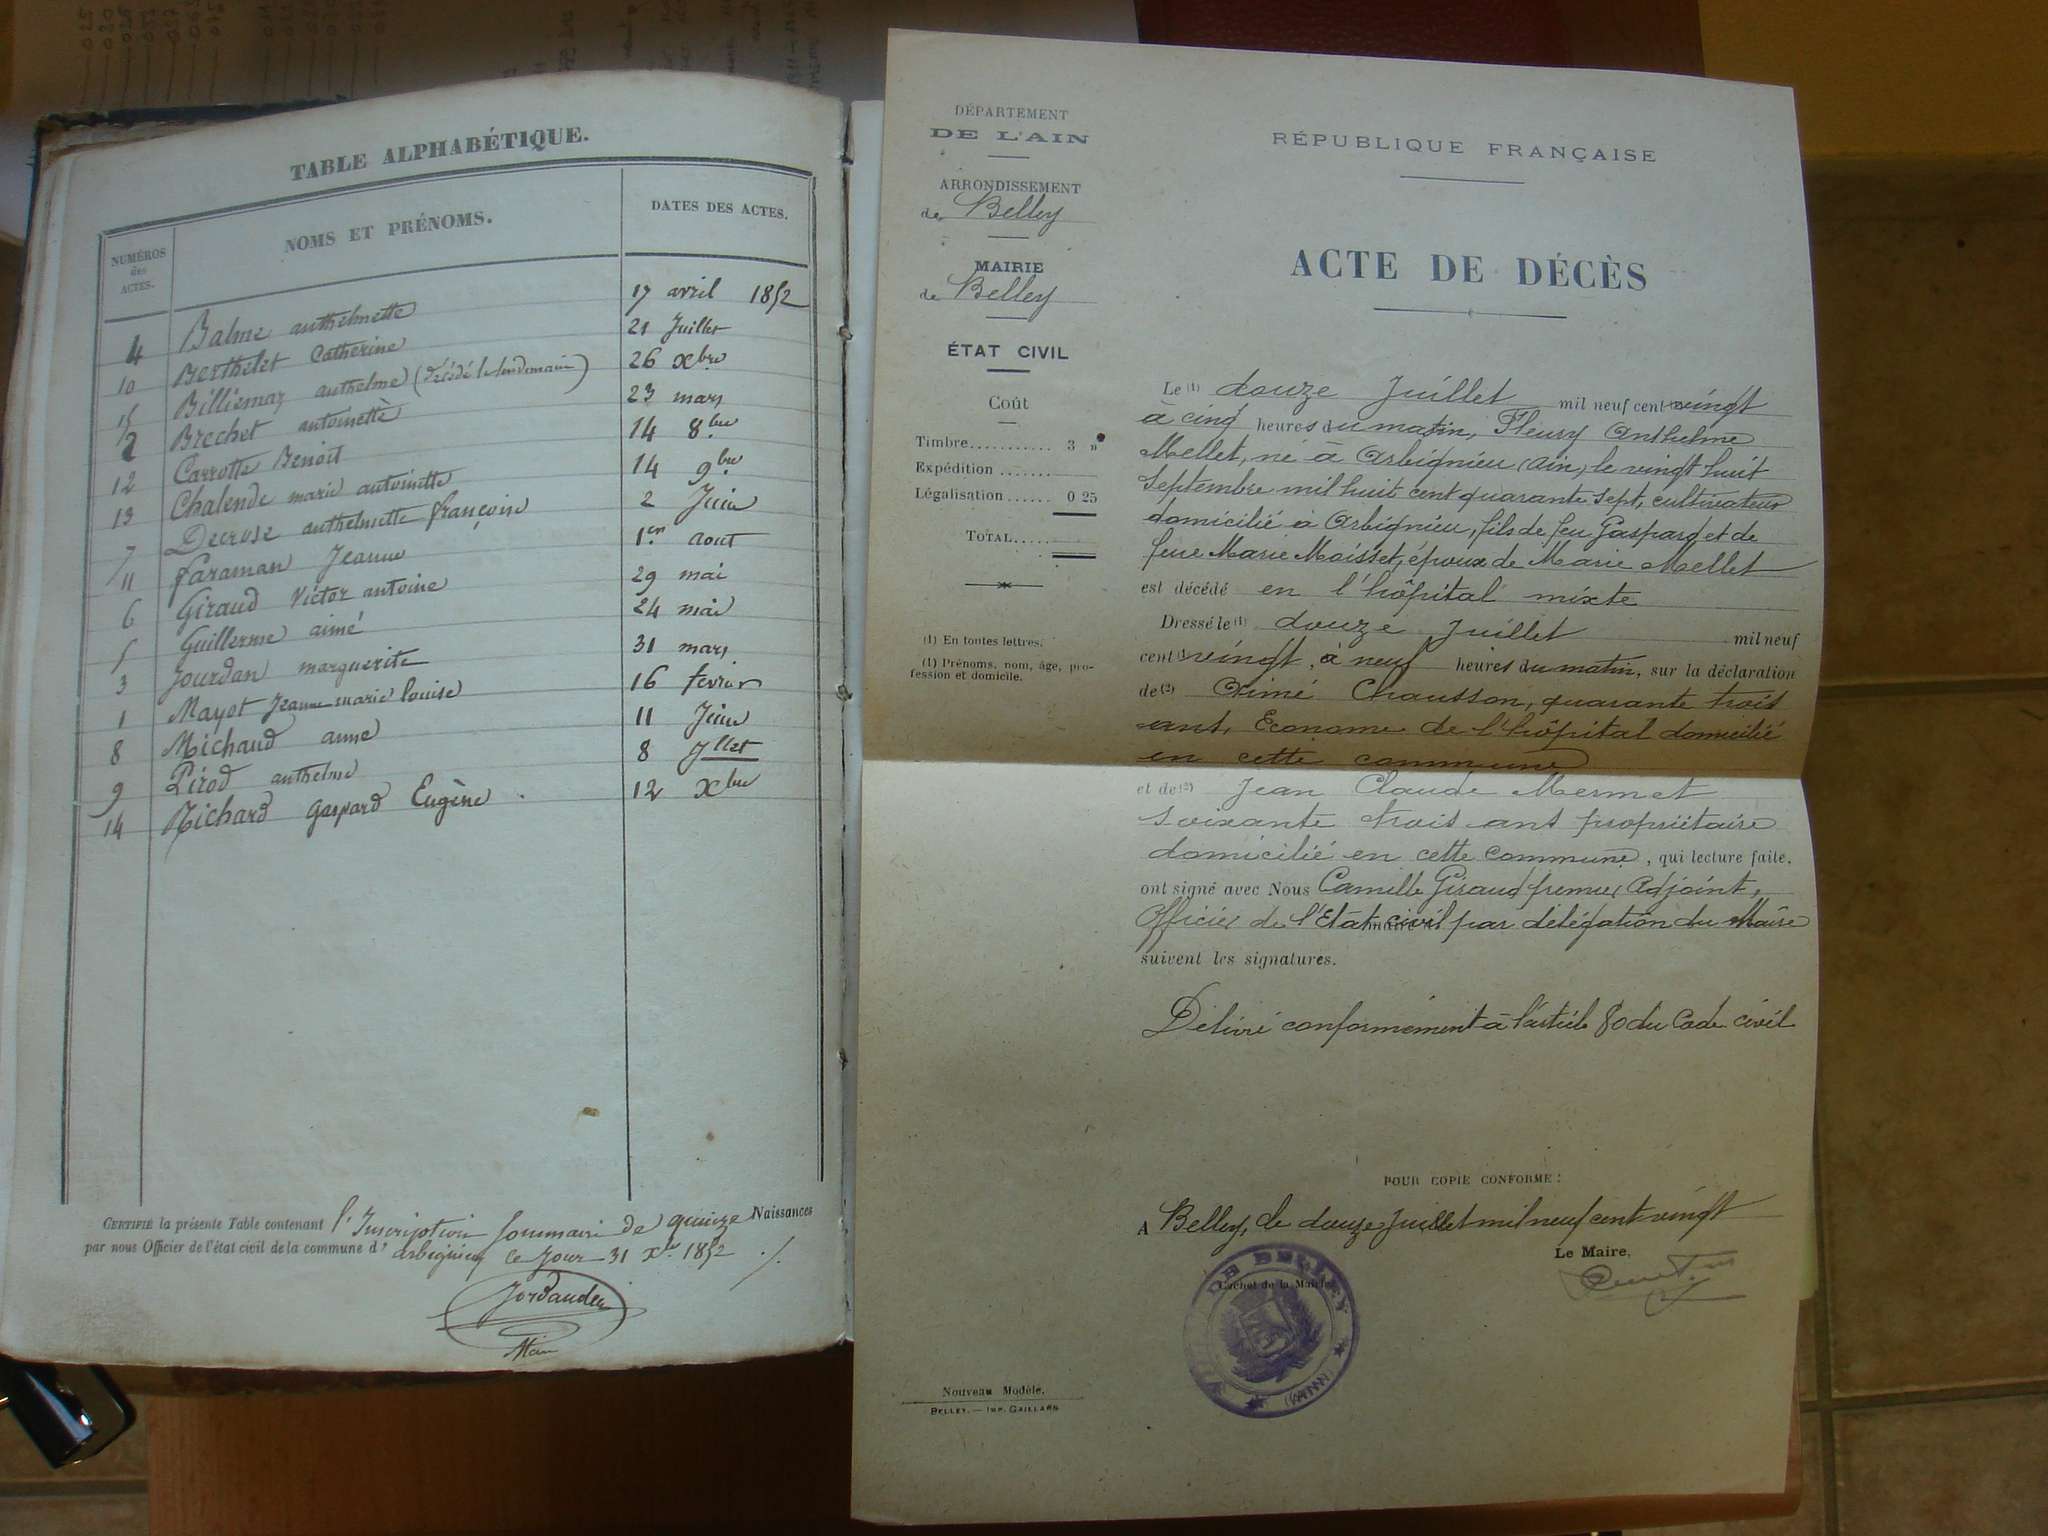 TABLE ALPHABÉTIQUE.
NUMÉROS des ACTES.
NOMS ET PRÉNOMS.
DATES DES ACTES.
4 Balme anthelmette 17 avril 1852
10 Berthelet Catherine 21 Juillet
15 Billiemaz anthelme (décédé le lendemain) 26 xbre
2 Brechet antoinette 23 mars
12 Carrotte Benoit 14 8bre
13 Chalende marie antoinette 14 9bre
7 Decrose anthelmette françoise 2 Juin
11 faraman Jeanne 1er aout
6 Giraud Victor antoine 29 mai
5 Guillerme aimé 24 mai
3 Jourdan marguerite 31 mars
1 Mayot Jeanne marie louise 16 fevrier
8 Michaud anne 11 Juin
9 Pirod anthelme 8 Jllet
14 Richard gaspard Eugène . 12 xbre
CERTIFIÉ la présente Table contenant l'Inscription Sommaire de quinze Naissances
par nous Officier de l'état civil de la commune d'arbignieu ce jour 31 xbre 1852
DÉPARTEMENT
DE L'AIN
ARRONDISSEMENT
de Belley
MAIRIE
de Belley
ÉTAT CIVIL
Coût
Timbre.......... 3 »
Expédition .......
Légalisation...... 0 25
TOTAL.....
(1) En toutes lettres.
(1) Prénoms, nom, âge, pro-
fession et domicile.
Nouveau Modèle.
BELLEY. — IMP. GAILLARD
RÉPUBLIQUE FRANÇAISE
ACTE DE DÉCÈS
Le (1) douze Juillet mil neuf cent vingt
à cinq heures du matin, Fleury Anthelme
Mellet, né à Arbignieu (Ain) le vingt huit
Septembre mil huit cent quarante sept, cultivateur
domicilié à Arbignieu, fils de feu Gaspard et de
feue Marie Moisset, époux de Marie Mellet
est décédé en l'hôpital mixte
Dressé le (1) douze Juillet mil neuf
cent vingt, à neuf heures du matin, sur la déclaration
de (2) Aimé Chausson, quarante trois
ans, Econome de l'hôpital domicilié
en cette commune
et de (2) Jean Claude Mermet
soixante trois ans propriétaire
domicilié en cette commune, qui lecture faite,
ont signé avec Nous Camille Giraud premier Adjoint,
Officier de l'Etat civil par délégation du Maire
suivent les signatures.
Délivré conformément à l'article 80 du Code civil
POUR COPIE CONFORME :
A Belley, le douze Juillet mil neuf cent vingt
Le Maire,
Cachet de la Mairie
DE BELLEY